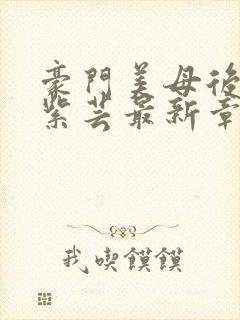 豪門美母後
紫芸最新章
我喫饃饃